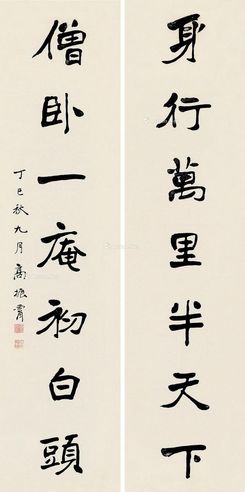 身行萬里半天下
僧卧一庵初白頭
丁巳秋九月高振霄